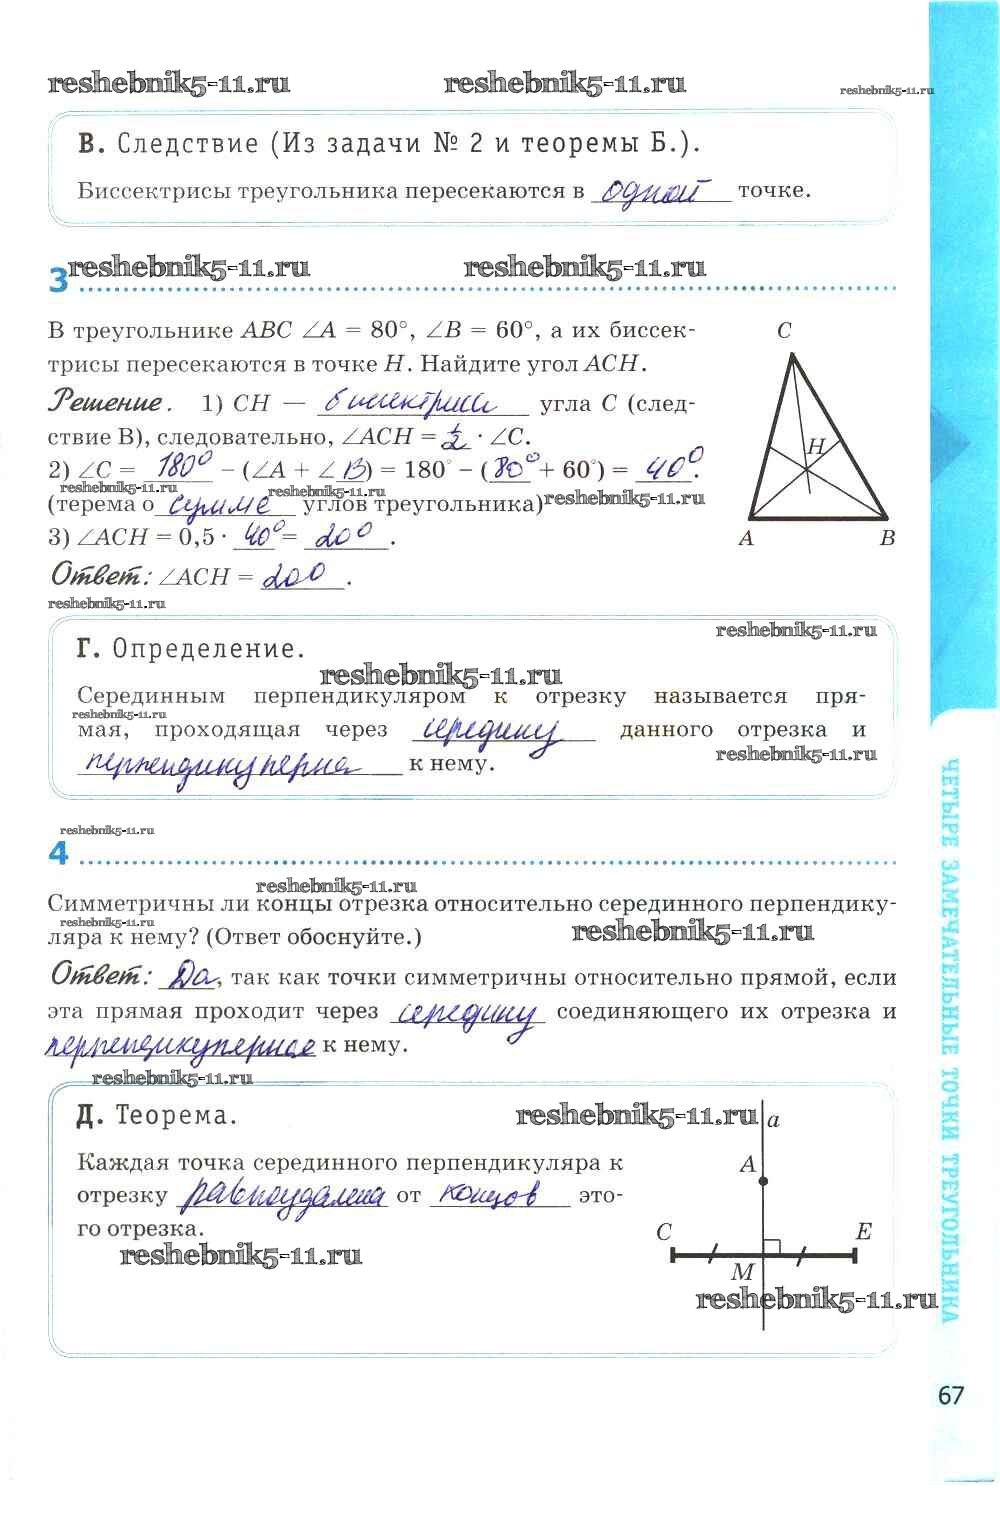 reshebnik5-11.ru reshebnik5-11.ru reshebnik5-11.ru
В. Следствие (Из задачи № 2 и теоремы Б.).
Биссектрисы треугольника пересекаются в одной точке.
reshebnik5-11.ru reshebnik5-11.ru
3
В треугольнике ABC ∠A = 80°, ∠B = 60°, а их биссек-
трисы пересекаются в точке H. Найдите угол ACH.
Решение. 1) CH — биссектриса угла C (след-
ствие В), следовательно, ∠ACH = ½ · ∠C.
2) ∠C = 180° – (∠A + ∠B) = 180° – (80° + 60°) = 40°.
reshebnik5-11.ru reshebnik5-11.ru reshebnik5-11.ru
(терема о сумме углов треугольника)
3) ∠ACH = 0,5 · 40° = 20°.
Ответ: ∠ACH = 20°.
C
H
A B
reshebnik5-11.ru
reshebnik5-11.ru
Г. Определение.
reshebnik5-11.ru
Серединным перпендикуляром к отрезку называется пря-
reshebnik5-11.ru
мая, проходящая через середину данного отрезка и
reshebnik5-11.ru
перпендикулярна к нему.
reshebnik5-11.ru
4
reshebnik5-11.ru
Симметричны ли концы отрезка относительно серединного перпендику-
reshebnik5-11.ru
ляра к нему? (Ответ обоснуйте.)
reshebnik5-11.ru
Ответ: Да, так как точки симметричны относительно прямой, если
эта прямая проходит через середину соединяющего их отрезка и
перпендикулярное к нему.
reshebnik5-11.ru
Д. Теорема.
reshebnik5-11.ru
Каждая точка серединного перпендикуляра к
отрезку равноудалена от концов это-
го отрезка.
reshebnik5-11.ru
a
A
C E
M
reshebnik5-11.ru
ЧЕТЫРЕ ЗАМЕЧАТЕЛЬНЫЕ ТОЧКИ ТРЕУГОЛЬНИКА
67